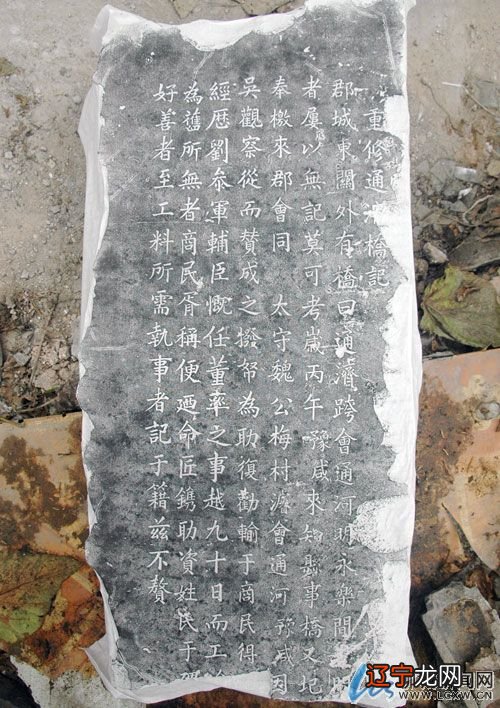 重修通济橋記
郡城東關外有橋曰通濟跨會通河明永樂間
者屢以無記莫可考歲丙午豫咸來知縣事橋又圮
奉檄來郡會同 太守魏公梅村濬會通河豫咸因
吳觀察從而贊成之撥帑為助復勸輸于商民得
經歷劉叅軍輔臣慨任董率之事越九十日而工
為舊所無者商民胥稱便迺命匠鐫助資姓民于
好善者至工料所需執事者記于籍茲不贅
辽宁龙网
WWW.LGXW.CN
闻网